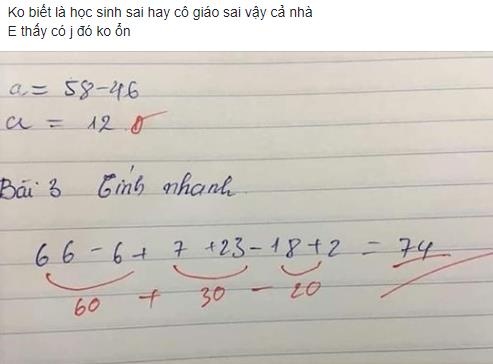 Ko biết là học sinh sai hay cô giáo sai vậy cả nhà
E thấy có j đó ko ổn
a = 58-46
a = 12
Bài 3 Tính nhanh
66-6+7+23-18+2 = 74
60 + 30 - 20